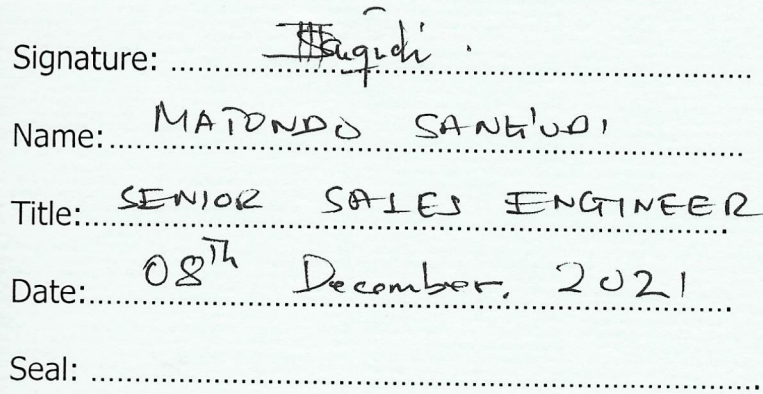 Signature: ..................................................
Name: MATONDO SANG'UDI
Title: SENIOR SALES ENGINEER
Date: 08Th December, 2021
Seal: ..................................................